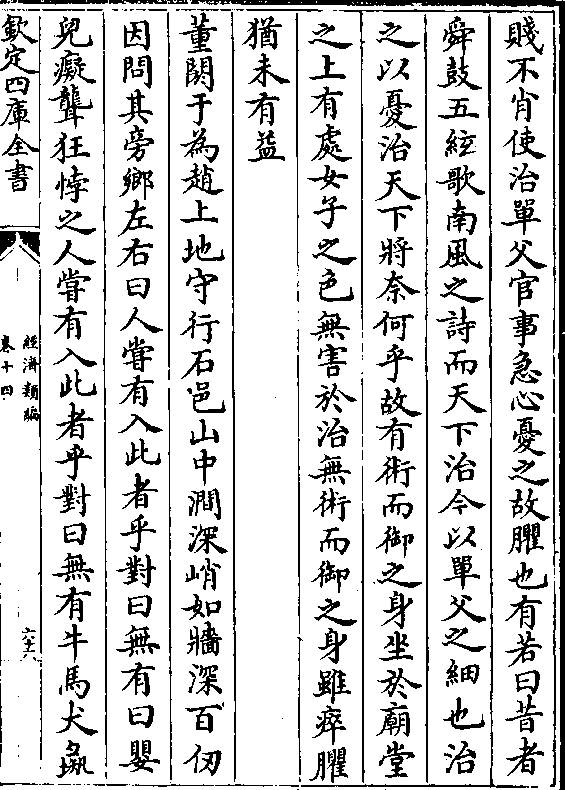 賤不肖使治單父官事急心憂之故臞也有若曰昔者
舜鼓五絃歌南風之詩而天下治今以單父之細也治
之以憂治天下將奈何乎故有術而御之身坐於廟堂
之上有處女子之色無害於治無術而御之身雖瘁臞
猶未有益
董閼于為趙上地守行石邑山中澗深峭如牆深百仞
因問其旁鄉左右曰人嘗有入此者乎對曰無有曰嬰
兒癡聾狂悖之人嘗有入此者乎對曰無有牛馬犬彘
欽定四庫全書
經濟類編
卷十四
六十六